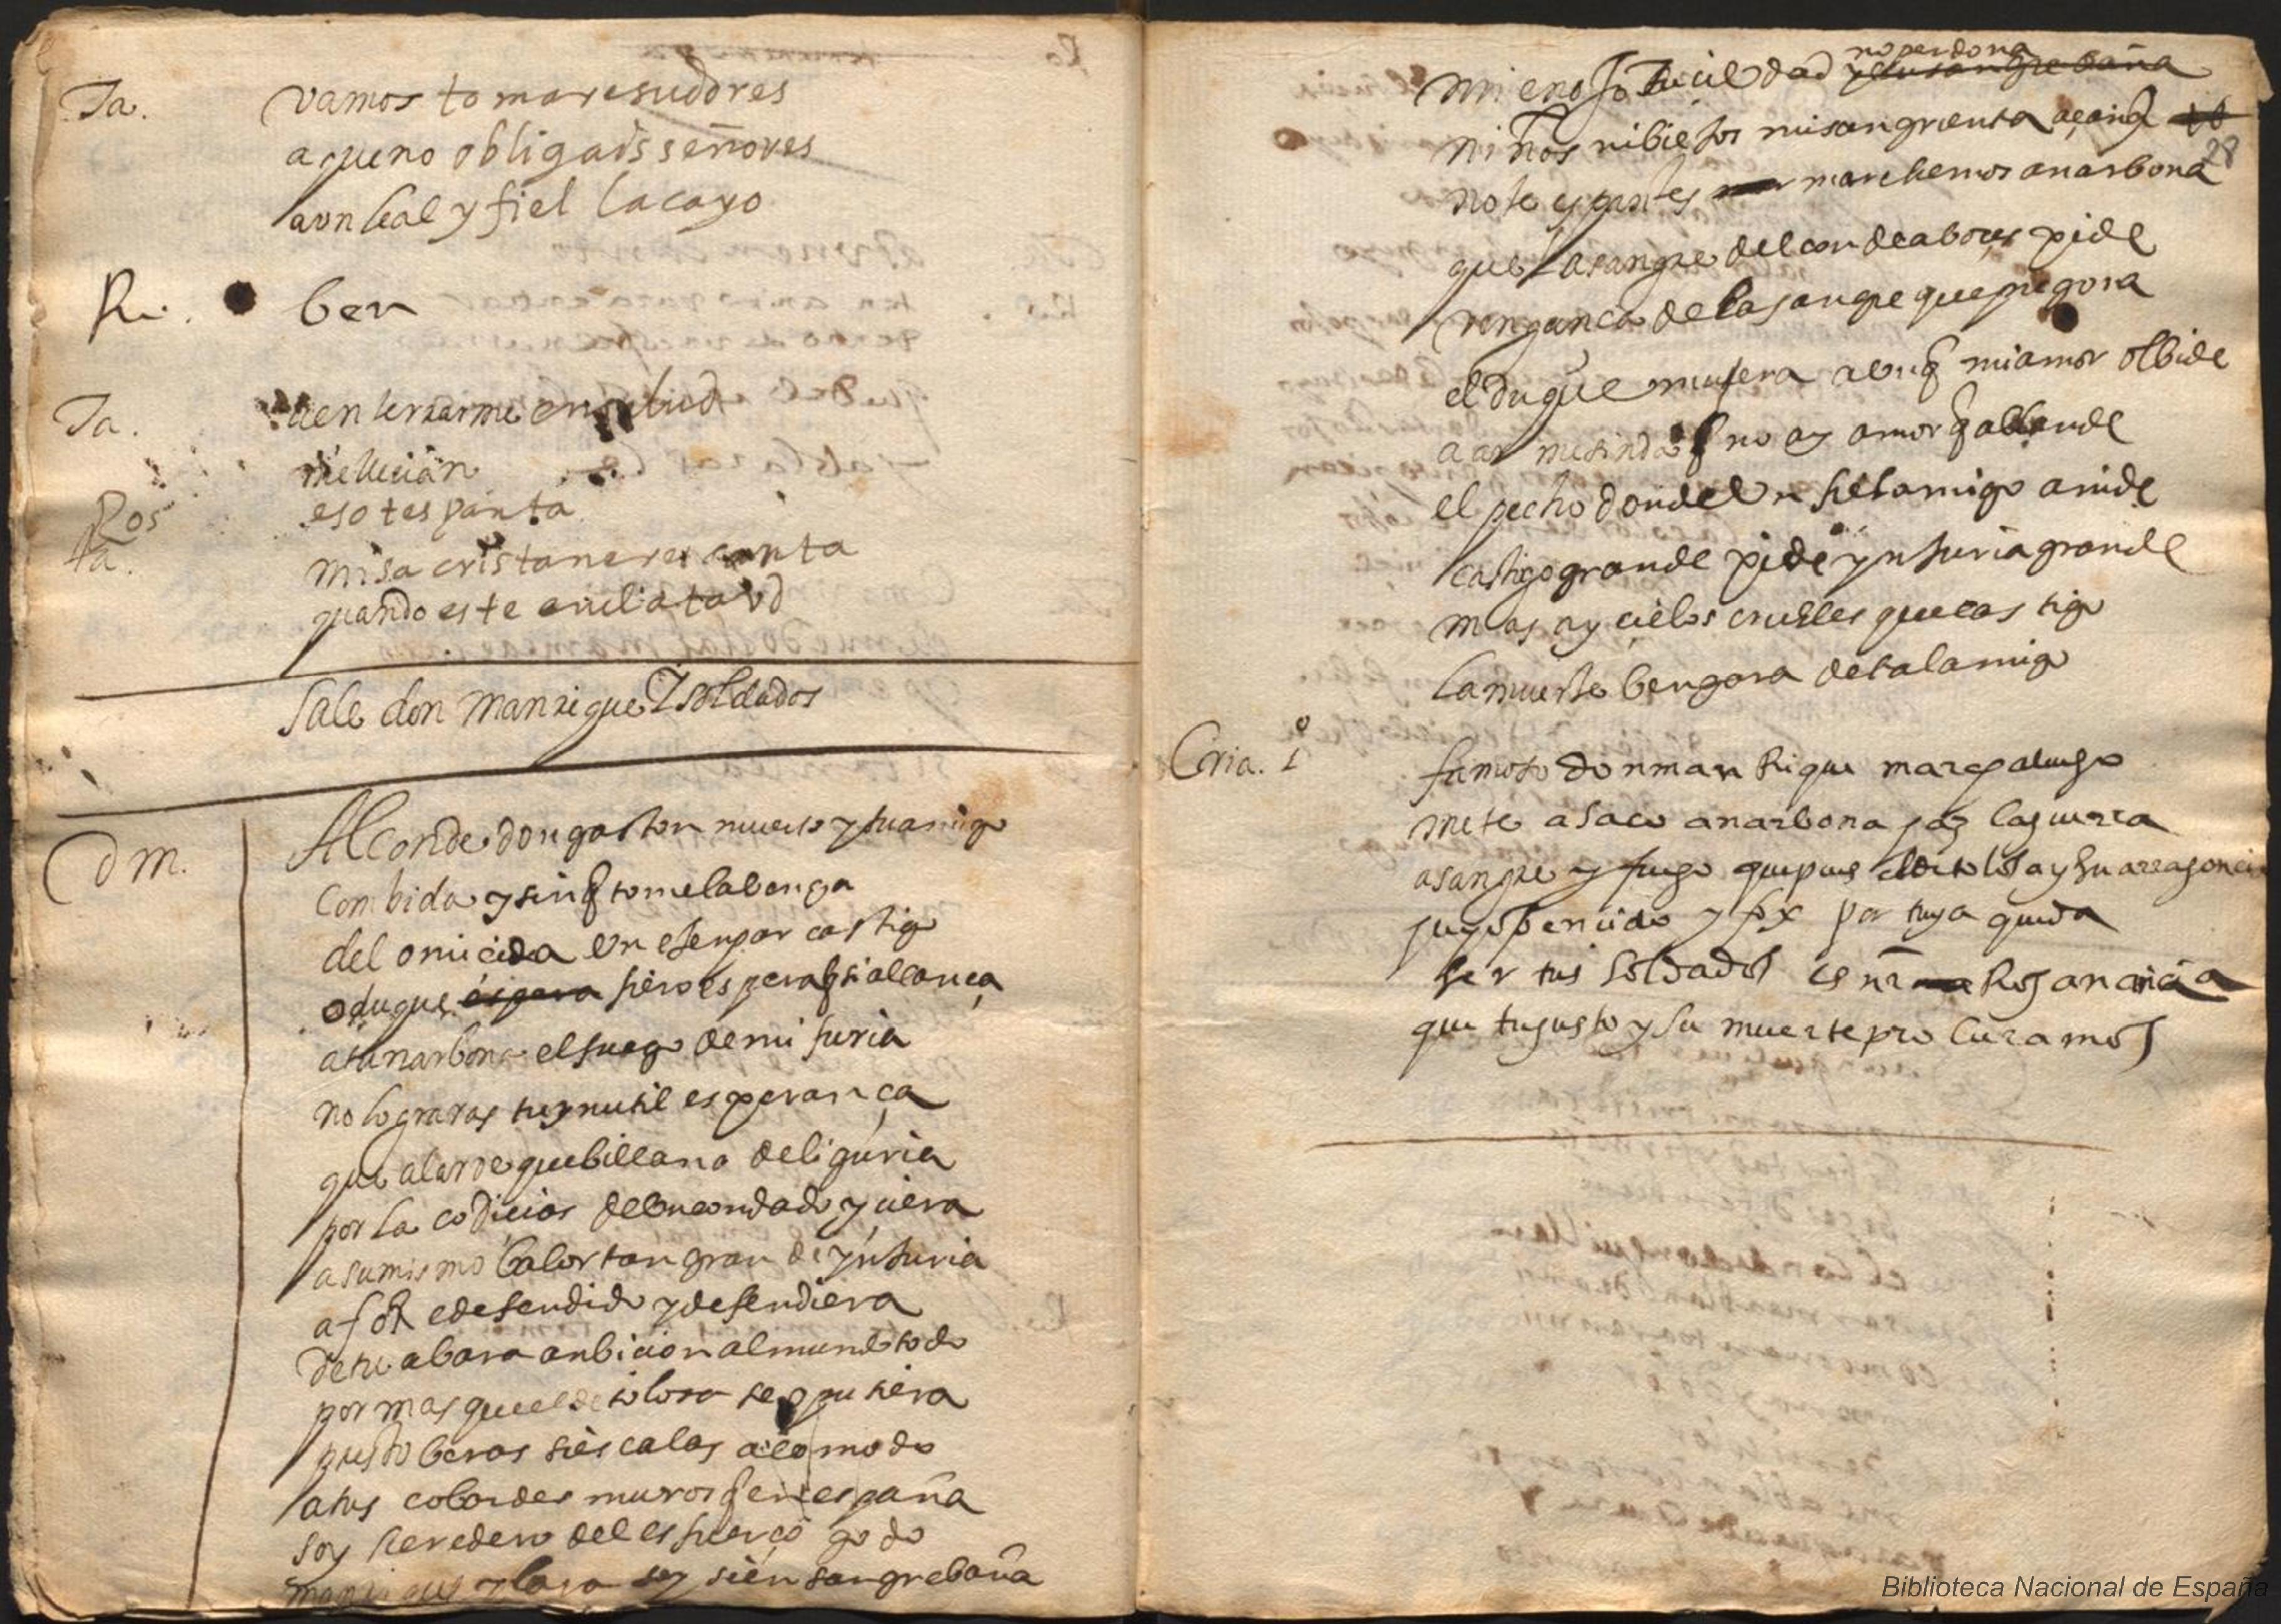 Ta. vamos tomaresudores
aqueno obligais señores
aun leal y fiel lacayo
Ri. ben
Ta. aenterrarme
Ros eso tespanta
ta. misa cristaneres canta
quando este enelatavd
Sale don manrique Y soldados
d m. Al Conde don gaston muerto y suamigo
Combida y sinq tomelabenga
del omicida en esenpar castigo
o duque espera fiero espera q si alcança
atunarbona elfuego demi furia
no lograras tuynutil esperança
que alarde quebillano deliguria
por la codicias de vn condado yciera
asumismo balor tan gran de ynjuria
defendido ydefendiera
detu abara anbicion almundo todo
por mas queelde tolosa seopusiera
presto beras si escalas acomodo
atus cobardes muros q en españa
soy heredero del esfuerço godo
manrique y lara soy si en sangrebaña
mi enojo tuciudad no perdona
yensusangre baña
niños nibiejos misangrienta açaña
28
note espantes marchemos anarbona
que lasangre delconde aboces pide
vengança delasangre quepregona
el duque muera avnq miamor olbide
a armesinda q no ay amor q ablande
el pecho donde vn fielamigo anide
castigo grande pide ynjuria grande
mas ay cielos crueles que castigo
lamuerte bengara detalamigo
Cria. 1º famoso donman Rique marcha luego
mete a saco anarbona haz laguerra
asangre y fuego quepues eldetolosa y su arragoncia
huyo bencido y por tuya queda
ser tus soldados es nra Rogancia
que tugusto y su muerte procuramos
Biblioteca Nacional de España